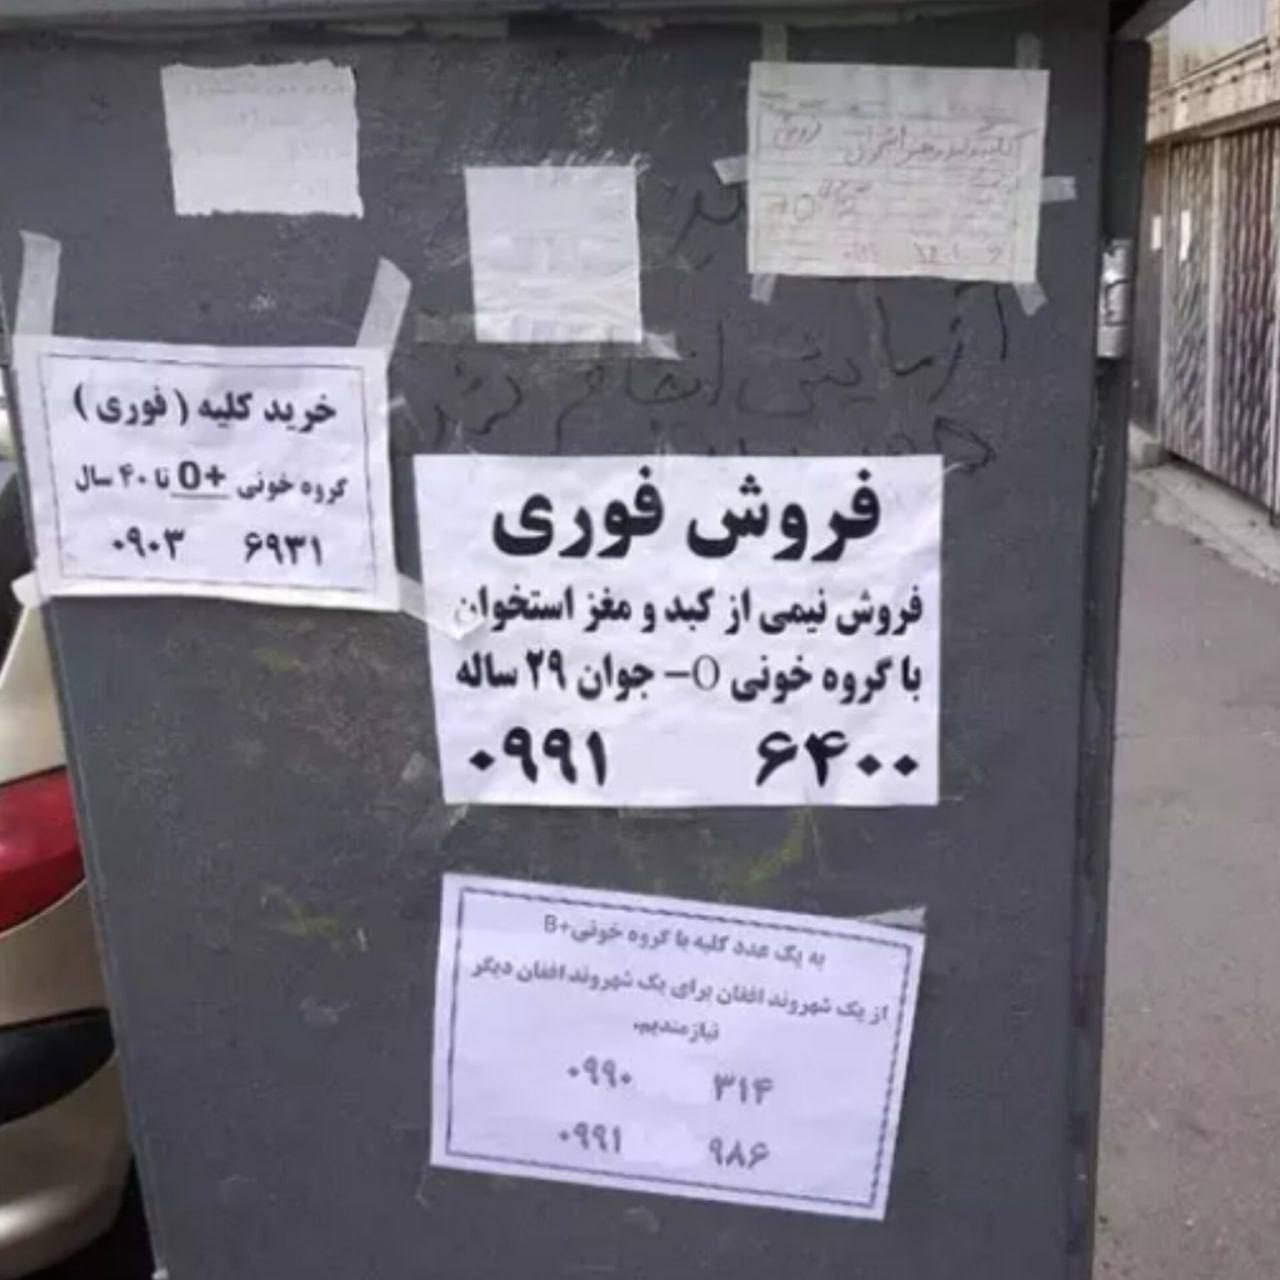 کلیه کبد مغز استخوان فروش
آزمایش انجام شد
خرید کلیه ( فوری )
گروه خونی O+ تا ۴۰ سال
۰۹۰۳ ۶۹۳۱
فروش فوری
فروش نیمی از کبد و مغز استخوان
با گروه خونی O- جوان ۲۹ ساله
۰۹۹۱ ۶۴۰۰
به یک عدد کلیه با گروه خونی B+
از یک شهروند افغان برای یک شهروند افغان دیگر
نیازمندیم.
۰۹۹۰ ۳۱۴
۰۹۹۱ ۹۸۶